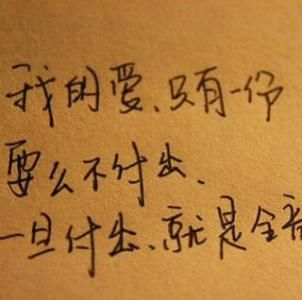 我的爱、只有一份
要么不付出、
一旦付出、就是全